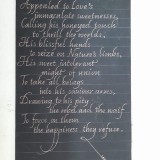 Appealed to Love's
immaculate sweetnesses,
Calling his honeyed touch
to thrill the worlds,
His blissful hands
to seize on Nature's limbs,
His sweet intolerant
might of union
To take all beings
into his saviour arms,
Drawing to his pity
the rebel and the waif
To force on them
the happiness they refuse.